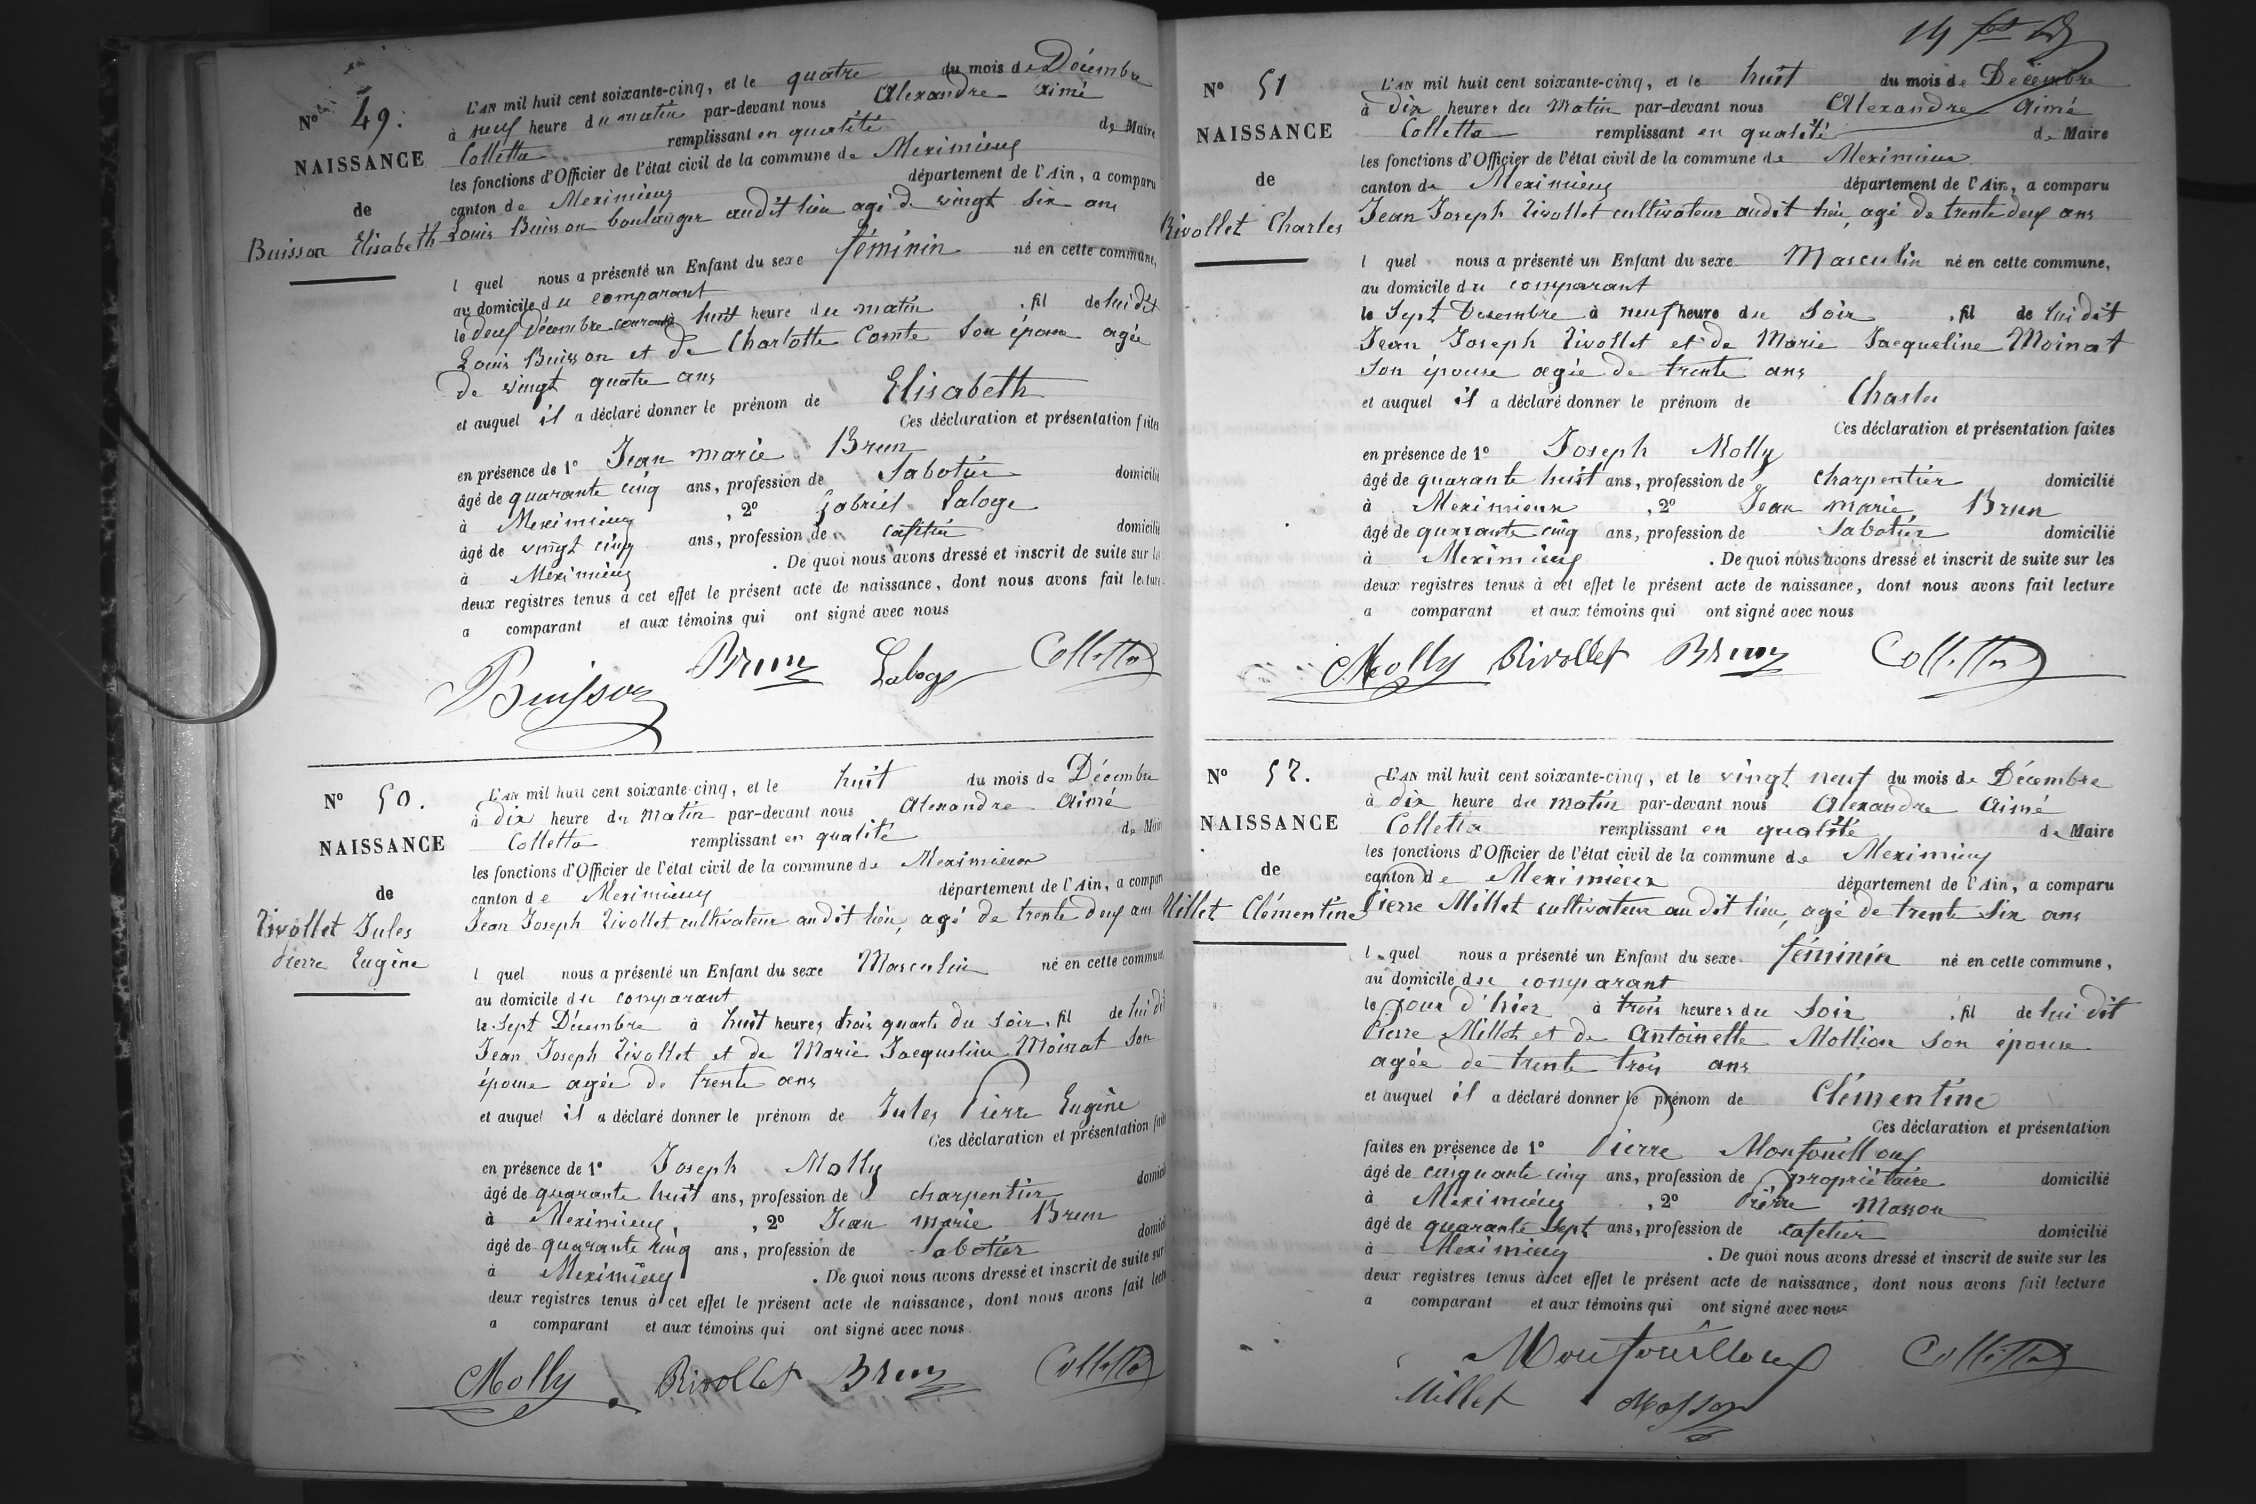 N° 49.
NAISSANCE
de
Buisson Elisabeth
L'AN mil huit cent soixante-cinq, et le quatre du mois de Décembre
à neuf heure du matin par-devant nous Alexandre Aimé
Colletta remplissant en qualité de Maire
les fonctions d'Officier de l'état civil de la commune de Meximieux
canton de Meximieux département de l'Ain, a comparu
Louis Buisson boulanger audit lieu agé de vingt six ans
l quel nous a présenté un Enfant du sexe féminin né en cette commune,
au domicile du comparant
le deux Décembre courant à huit heure du matin , fil de lui dit
Louis Buisson et de Charlotte Comte son épouse agée
de vingt quatre ans
et auquel il a déclaré donner le prénom de Elisabeth
Ces déclaration et présentation faites
en présence de 1° Jean marie Brun
âgé de quarante cinq ans, profession de Sabotier domicilié
à Meximieux , 2° Gabriel Laloge
âgé de vingt cinq ans, profession de cafetier domicilié
à Meximieux . De quoi nous avons dressé et inscrit de suite sur les
deux registres tenus à cet effet le présent acte de naissance, dont nous avons fait lecture
a comparant et aux témoins qui ont signé avec nous
Buisson Brun Laloge Colletta
N° 50.
NAISSANCE
de
Rivollet Jules
Pierre Eugène
L'AN mil huit cent soixante-cinq, et le huit du mois de Décembre
à dix heure du matin par-devant nous Alexandre Aimé
Colletta remplissant en qualité de Maire
les fonctions d'Officier de l'état civil de la commune de Meximieux
canton de Meximieux département de l'Ain, a comparu
Jean Joseph Rivollet cultivateur audit lieu, agé de trente deux ans
l quel nous a présenté un Enfant du sexe Masculin né en cette commune
au domicile du comparant
le Sept Décembre à huit heures trois quarts du Soir, fil de lui dit
Jean Joseph Rivollet et de Marie Jacqueline Moinat son
épouse agée de trente ans
et auquel il a déclaré donner le prénom de Jules Pierre Eugène
Ces déclaration et présentation faites
en présence de 1° Joseph Molly
âgé de quarante huit ans, profession de charpentier domicilié
à Meximieux, , 2° Jean marie Brun
âgé de quarante cinq ans, profession de Sabotier domicilié
à Meximieux . De quoi nous avons dressé et inscrit de suite sur
deux registres tenus à cet effet le présent acte de naissance, dont nous avons fait lecture
a comparant et aux témoins qui ont signé avec nous.
Molly Rivollet Brun Colletta
N° 51
NAISSANCE
de
Rivollet Charles
L'AN mil huit cent soixante-cinq, et le huit du mois de Décembre
à dix heures du Matin par-devant nous Alexandre Aimé
Colletta remplissant en qualité de Maire
les fonctions d'Officier de l'état civil de la commune de Meximieux
canton de Meximieux département de l'Ain, a comparu
Jean Joseph Rivollet cultivateur audit lieu, agé de trente deux ans
l quel nous a présenté un Enfant du sexe Masculin né en cette commune,
au domicile du comparant
le Sept Décembre à neuf heure du Soir , fil de lui dit
Jean Joseph Rivollet et de Marie Jacqueline Moinat
Son épouse agée de trente ans
et auquel il a déclaré donner le prénom de Charles
Ces déclaration et présentation faites
en présence de 1° Joseph Molly
âgé de quarante huit ans, profession de charpentier domicilié
à Meximieux , 2° Jean marie Brun
âgé de quarante cinq ans, profession de Sabotier domicilié
à Meximieux . De quoi nous avons dressé et inscrit de suite sur les
deux registres tenus à cet effet le présent acte de naissance, dont nous avons fait lecture
a comparant et aux témoins qui ont signé avec nous
Molly Rivollet Brun Colletta
N° 52.
NAISSANCE
de
Millet Clémentine
L'AN mil huit cent soixante-cinq, et le vingt neuf du mois de Décembre
à dix heure du matin par-devant nous Alexandre Aimé
Colletta remplissant en qualité de Maire
les fonctions d'Officier de l'état civil de la commune de Meximieux
canton de Meximieux département de l'Ain, a comparu
Pierre Millet cultivateur au dit lieu, agé de trente six ans
l quel nous a présenté un Enfant du sexe féminin né en cette commune,
au domicile du comparant
le jour d'hier à trois heures du Soir , fil de lui dit
Pierre Millet et de Antoinette Mollion son épouse
agée de trente trois ans
et auquel il a déclaré donner le prénom de Clémentine
Ces déclaration et présentation
faites en présence de 1° Pierre Monfouilloux
âgé de cinquante cinq ans, profession de propriétaire domicilié
à Meximieux , 2° Pierre Masson
âgé de quarante sept ans, profession de cafetier domicilié
à Meximieux . De quoi nous avons dressé et inscrit de suite sur les
deux registres tenus à cet effet le présent acte de naissance, dont nous avons fait lecture
a comparant et aux témoins qui ont signé avec nous
Monfouilloux Colletta
Millet Masson